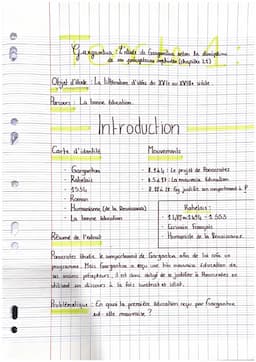 Gargantua : L'étude de Gargantua selon la discipline
de ses précepteurs sophistes (chapitre 21)
Objet d'étude : La littérature d'idées du XVIe au XVIIIe siècle.
Parcours : La bonne éducation.
Introduction
Carte d'identité
- Gargantua
- Rabelais
- 1534
- Roman
- Humanisme (de la Renaissance)
- La bonne éducation
Mouvements
l.1 à 4 : Le projet de Ponocrates
l.5 à 17 : La mauvaise éducation
Rabelais :
- Ecrivain Français
- Humaniste de la Renaissance
Résumé de l'extrait
Ponocrates étudie le comportement de Gargantua afin de lui faire un
programme. Mais Gargantua a reçu une très mauvaise éducation de
ses anciens précepteurs, il est donc obligé de se justifier à Ponocrates en
utilisant un discours à la fois burlesque et idiot.
Problématique : En quoi la première éducation reçu par Gargantua
est elle mauvaise ?